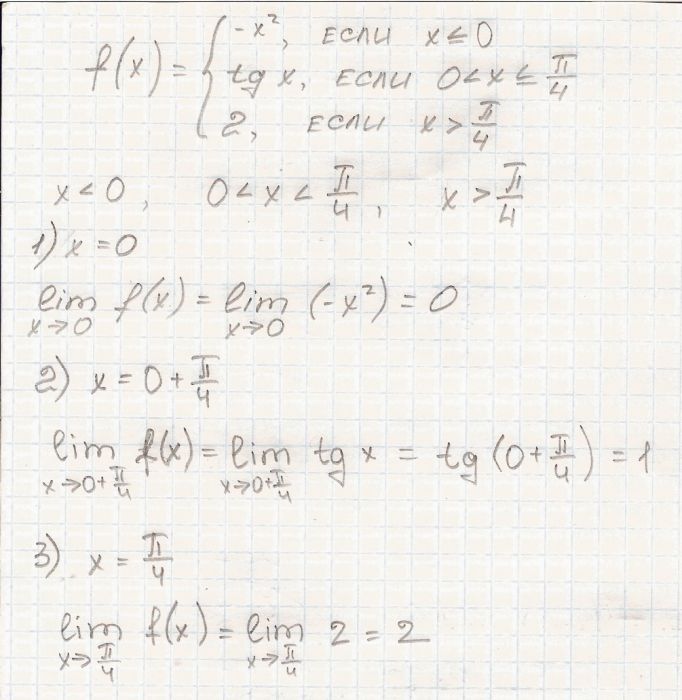 f(x) = { -x², если x ≤ 0
tg x, если 0 < x ≤ π/4
2, если x > π/4
x < 0, 0 < x < π/4, x > π/4
1) x = 0
lim x→0 f(x) = lim x→0 (-x²) = 0
2) x = 0 + π/4
lim x→0+π/4 f(x) = lim x→0+π/4 tg x = tg (0 + π/4) = 1
3) x = π/4
lim x→π/4 f(x) = lim x→π/4 2 = 2